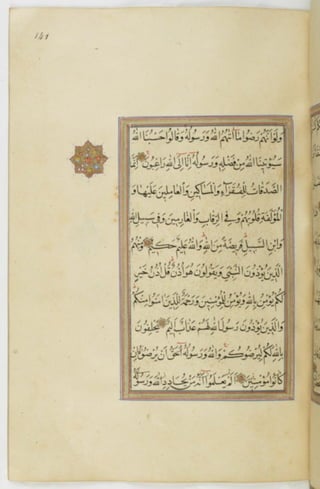 141
وَلَوْ أَنَّهُمْ رَضُوا مَا آتَاهُمُ اللَّهُ وَرَسُولُهُ وَقَالُوا حَسْبُنَا اللَّهُ
سَيُؤْتِينَا اللَّهُ مِنْ فَضْلِهِ وَرَسُولُهُ إِنَّا إِلَى اللَّهِ رَاغِبُونَ إِنَّمَا
الصَّدَقَاتُ لِلْفُقَرَاءِ وَالْمَسَاكِينِ وَالْعَامِلِينَ عَلَيْهَا وَ
الْمُؤَلَّفَةِ قُلُوبُهُمْ وَفِي الرِّقَابِ وَالْغَارِمِينَ وَفِي سَبِيلِ اللَّهِ
وَابْنِ السَّبِيلِ فَرِيضَةً مِنَ اللَّهِ وَاللَّهُ عَلِيمٌ حَكِيمٌ وَمِنْهُمُ
الَّذِينَ يُؤْذُونَ النَّبِيَّ وَيَقُولُونَ هُوَ أُذُنٌ قُلْ أُذُنُ خَيْرٍ
لَكُمْ يُؤْمِنُ بِاللَّهِ وَيُؤْمِنُ لِلْمُؤْمِنِينَ وَرَحْمَةٌ لِلَّذِينَ آمَنُوا مِنْكُمْ
وَالَّذِينَ يُؤْذُونَ رَسُولَ اللَّهِ لَهُمْ عَذَابٌ أَلِيمٌ يَحْلِفُونَ
بِاللَّهِ لَكُمْ لِيُرْضُوكُمْ وَاللَّهُ وَرَسُولُهُ أَحَقُّ أَنْ يُرْضُوهُ إِنْ
كَانُوا مُؤْمِنِينَ أَلَمْ يَعْلَمُوا أَنَّهُ مَنْ يُحَادِدِ اللَّهَ وَرَسُولَهُ